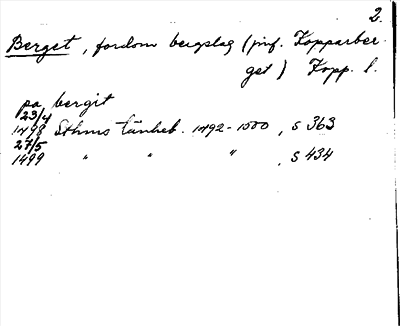 2.
Berget, fordom bergslag (jmf. Kopparber-
get) Kopp. l.
pa bergit
23/4
1498 Sthms tänkeb. 1492-1500, s 363
27/5
1499 " " " , s 434